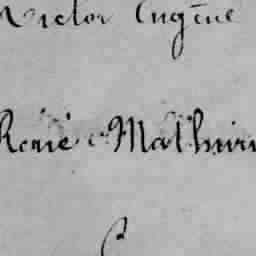 Victor Eugène
René Mathurin